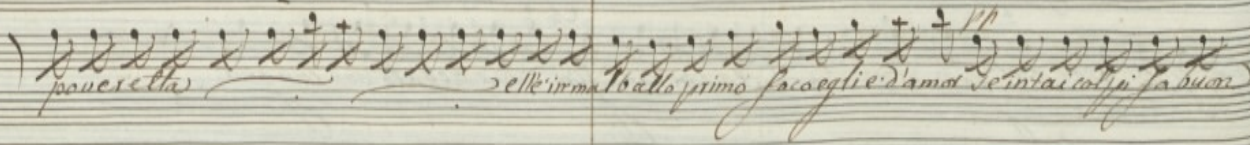 pp
poveretta ell'è in malo allo primo foco eglie d'amor se in tai colpi fa buon